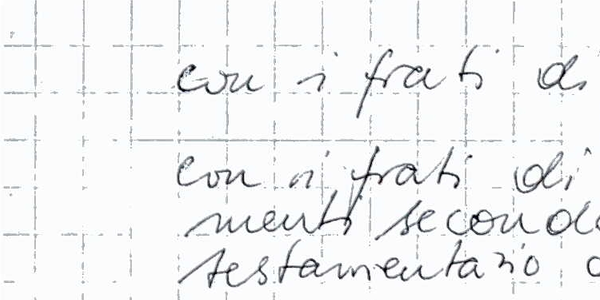 con i frati di
con i frati di
menti second
testamentario